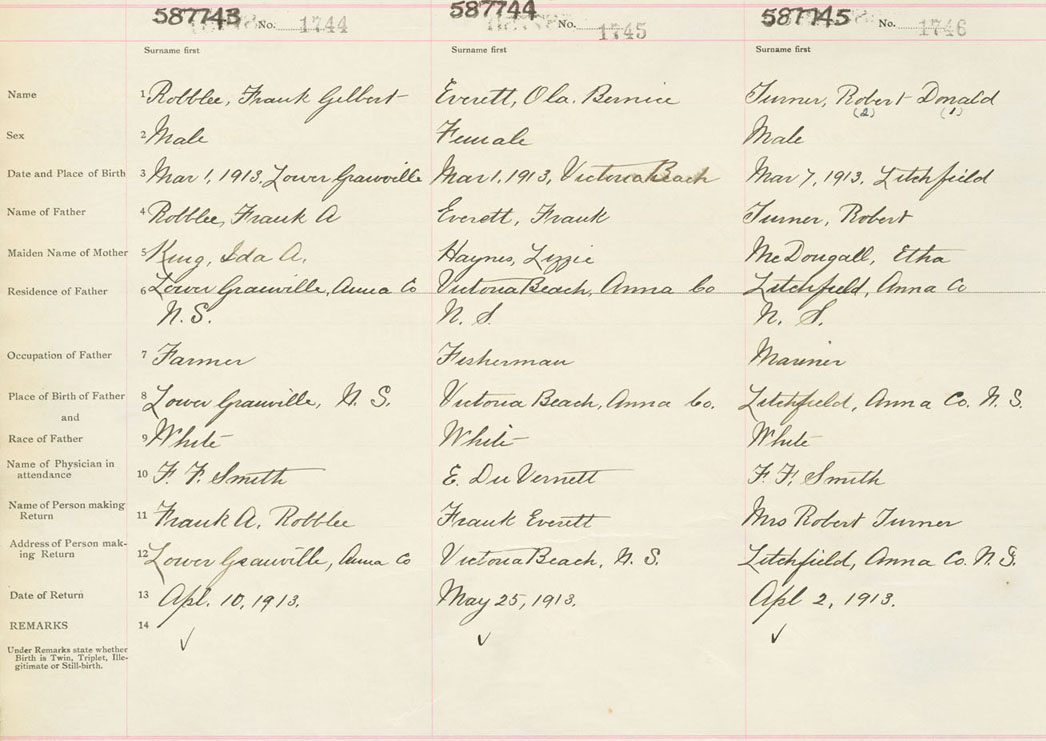 587743 No. 1744 587744 No. 1745 587745 No. 1746
Surname first Surname first Surname first
Name 1 Robblee, Frank Gilbert Everett, Ola. Bernice Turner, Robert Donald
(2) (1)
Sex 2 Male Female Male
Date and Place of Birth 3 Mar 1, 1913, Lower Granville Mar 1, 1913, Victoria Beach Mar 7, 1913. Litchfield
Name of Father 4 Robblee, Frank A Everett, Frank Turner, Robert
Maiden Name of Mother 5 King, Ida A. Haynes, Lizzie McDougall, Etha
Residence of Father 6 Lower Granville, Anna Co Victoria Beach, Anna Co Litchfield, Anna Co
N.S. N. S. N. S.
Occupation of Father 7 Farmer Fisherman Mariner
Place of Birth of Father 8 Lower Granville, N. S. Victoria Beach, Anna Co. Litchfield, Anna Co. N. S.
and
Race of Father 9 White White White
Name of Physician in
attendance 10 F. F. Smith E. Du Vernett F. F. Smith
Name of Person making
Return 11 Frank A. Robblee Frank Everett Mrs Robert Turner
Address of Person mak-
ing Return 12 Lower Granville, Anna Co Victoria Beach, N. S. Litchfield, Anna Co. N. S.
Date of Return 13 Apl. 10, 1913. May 25, 1913. Apl 2, 1913.
REMARKS 14
Under Remarks state whether
Birth is Twin, Triplet, Ille-
gitimate or Still-birth.